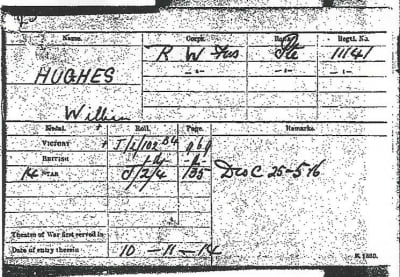 Name. Corps. Rank. Regtl. No.
HUGHES R W Fus Pte 11141
William
Medal. Roll. Page. Remarks.
VICTORY J/2/102 B4 969
BRITISH
14 STAR J/2/4 135 Des C 25-5-16
Theatre of War first served in
Date of entry therein 10 - 11 - 14 K. 1380.